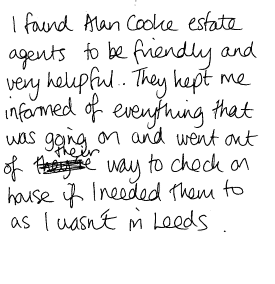 I found Alan Cooke estate
agents to be friendly and
very helpful.. They kept me
informed of everything that
was going on and went out
of their way to check on
house if I needed them to
as I wasn't in Leeds.